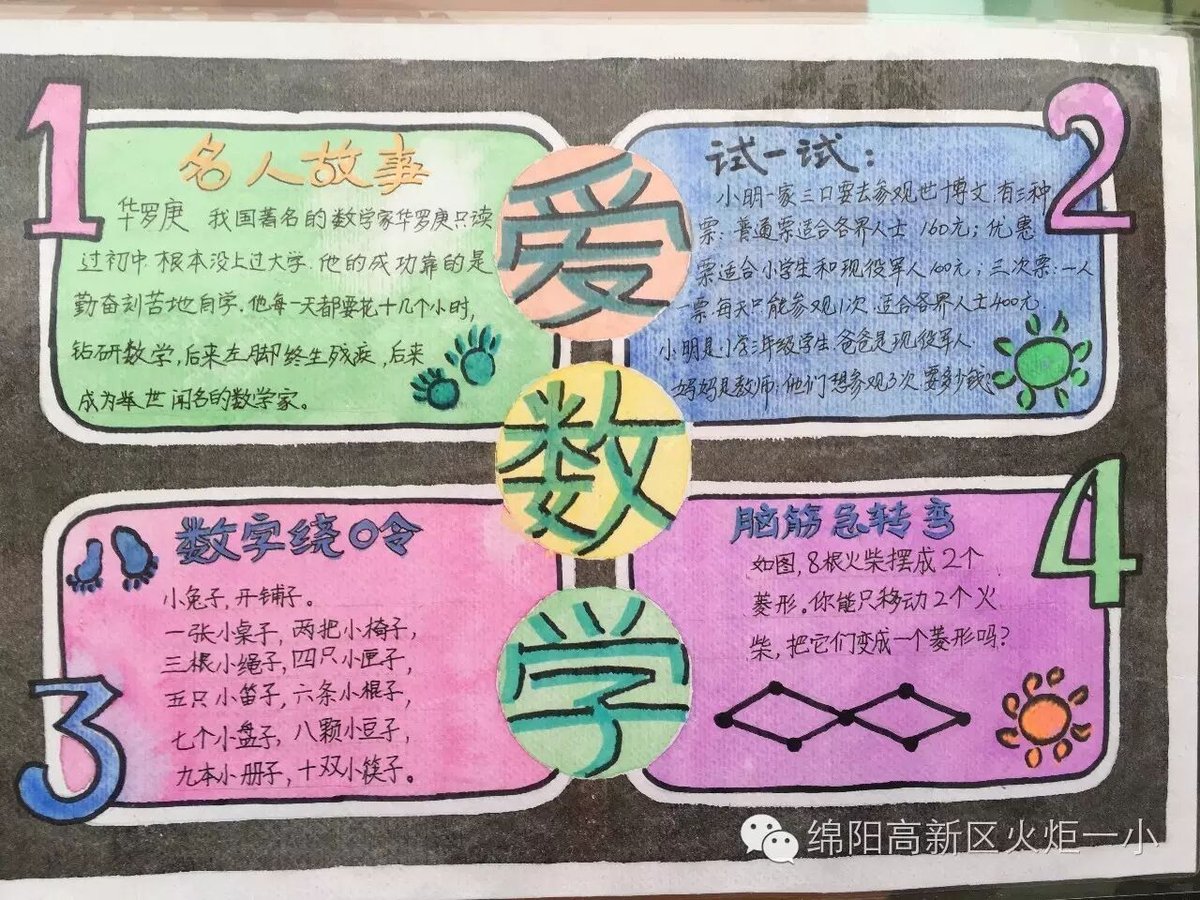 1
名人故事
华罗庚 我国著名的数学家华罗庚只读
过初中.根本没上过大学.他的成功靠的是
勤奋刻苦地自学.他每一天都要花十几个小时,
钻研数学,后来左脚终生残疾,后来
成为举世闻名的数学家。
爱
数
学
2
试一试:
小明一家三口要去参观世博文,有三种
票:普通票适合各界人士 160元;优惠
票适合小学生和现役军人100元,;三次票:一人
一票.每天只能参观1次.适合各界人士400元
小明是小学三年级学生爸爸是现役军人
妈妈是教师:他们想参观3次要多少钱?
3
数字绕口令
小兔子,开铺子。
一张小桌子,两把小椅子,
三根小绳子,四只小匣子,
五只小笛子,六条小棍子,
七个小盘子,八颗小豆子,
九本小册子,十双小筷子。
4
脑筋急转弯
如图,8根火柴摆成2个
菱形.你能只移动2个火
柴,把它们变成一个菱形吗?
绵阳高新区火炬一小